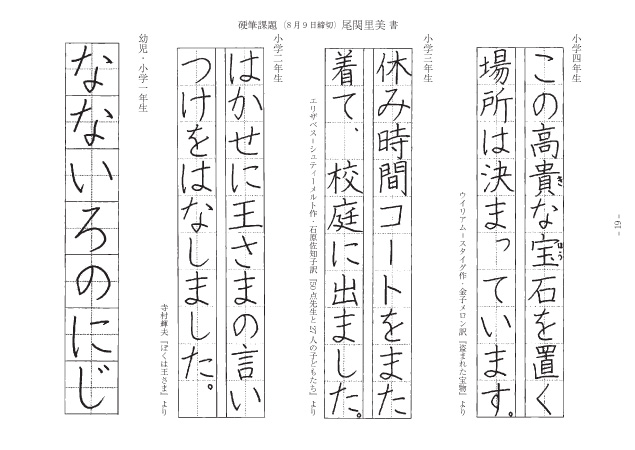 硬筆課題（８月９日締切）尾関里美 書
小学四年生
この高貴な宝石を置く
き
ほう
場所は決まっています。
ウイリアム＝スタイグ作・金子メロン訳『盗まれた宝物』より
小学三年生
休み時間コートをまた
着て、校庭に出ました。
エリザベス＝シュティーメルト作・石原佐知子訳『50点先生と27人の子どもたち』より
小学二年生
はかせに王さまの言い
つけをはなしました。
寺村輝夫『ぼくは王さま』より
幼児・小学一年生
なないろのにじ
- 19 -